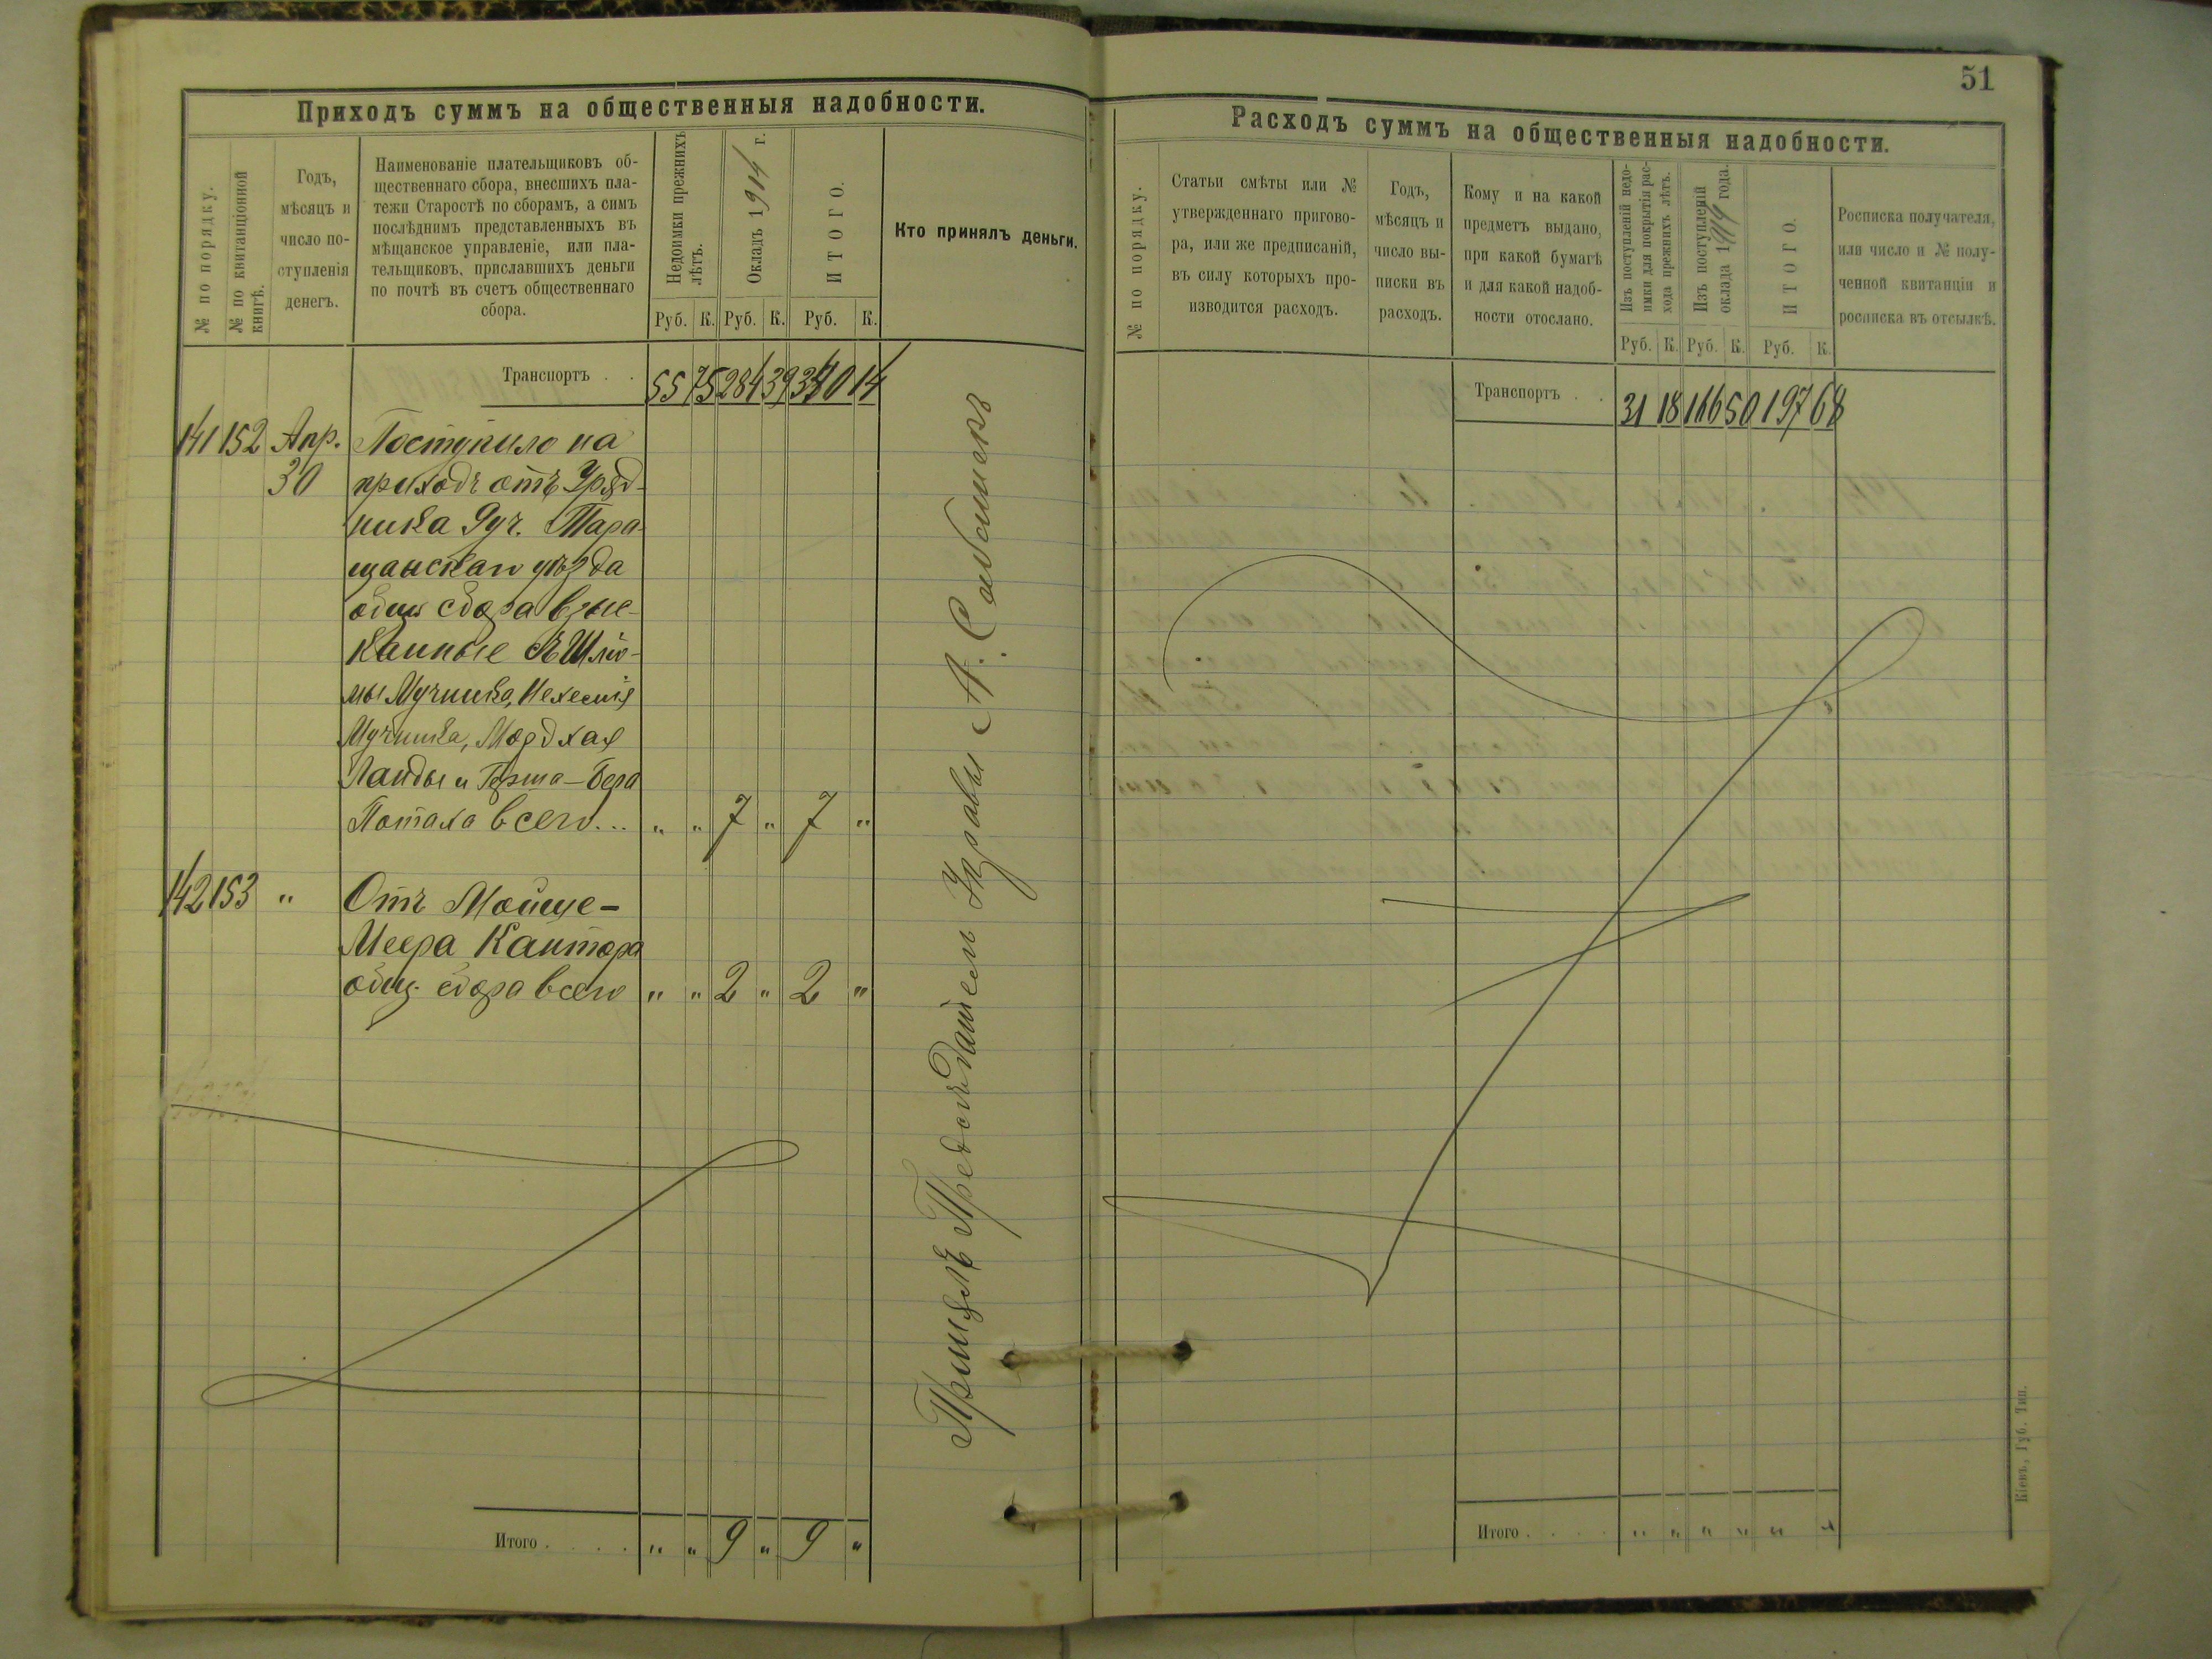 Приходъ суммъ на общественныя надобности.
№ по порядку.
№ по квитанціонной
книгѣ.
Годъ,
мѣсяцъ и
число по-
ступленія
денегъ.
Наименованіе плательщиковъ об-
щественнаго сбора, внесшихъ пла-
тежи Старостѣ по сборамъ, а симъ
послѣднимъ представленныхъ въ
мѣщанское управленіе, или пла-
тельщиковъ, приславшихъ деньги
по почтѣ въ счетъ общественнаго
сбора.
Недоимки прежнихъ
лѣтъ.
Окладъ 1914 г.
ИТОГО.
Руб. К. Руб. К. Руб. К.
Кто принялъ деньги.
Транспортъ . . 55 75 284 39 340 14
141 152 Апр. Поступило на
30 приходъ отъ Уряд-
ника 9 уч. Тара-
щанскаго уѣзда
общ сбора взыс-
канные съ Шлю-
мы Мучника, Нехемія
Мучника, Мордхая
Ланды и Герша-Бера
Потаха всего... „ „ 7 „ 7 „
142 153 „ Отъ Мойше-
Меера Кантора
общ. сбора всего „ „ 2 „ 2 „
Итого . . . . „ „ 9 „ 9 „
Управы А.
51
Расходъ суммъ на общественныя надобности.
№ по порядку.
Статьи смѣты или №
утвержденнаго пригово-
ра, или же предписаній,
въ силу которыхъ про-
изводится расходъ.
Годъ,
мѣсяцъ и
число вы-
писки въ
расходъ.
Кому и на какой
предметъ выдано,
при какой бумагѣ
и для какой надоб-
ности отослано.
Изъ поступленій недо-
имки для покрытія рас-
хода прежнихъ лѣтъ.
Изъ поступленій
оклада 1914 года.
ИТОГО.
Руб. К. Руб. К. Руб. К.
Росписка получателя,
или число и № полу-
ченной квитанціи и
росписка въ отсылкѣ.
Транспортъ . . 31 18 166 50 197 68
Итого . . . . „ „ „ „ „ „
Кіевъ, Губ. Тип.